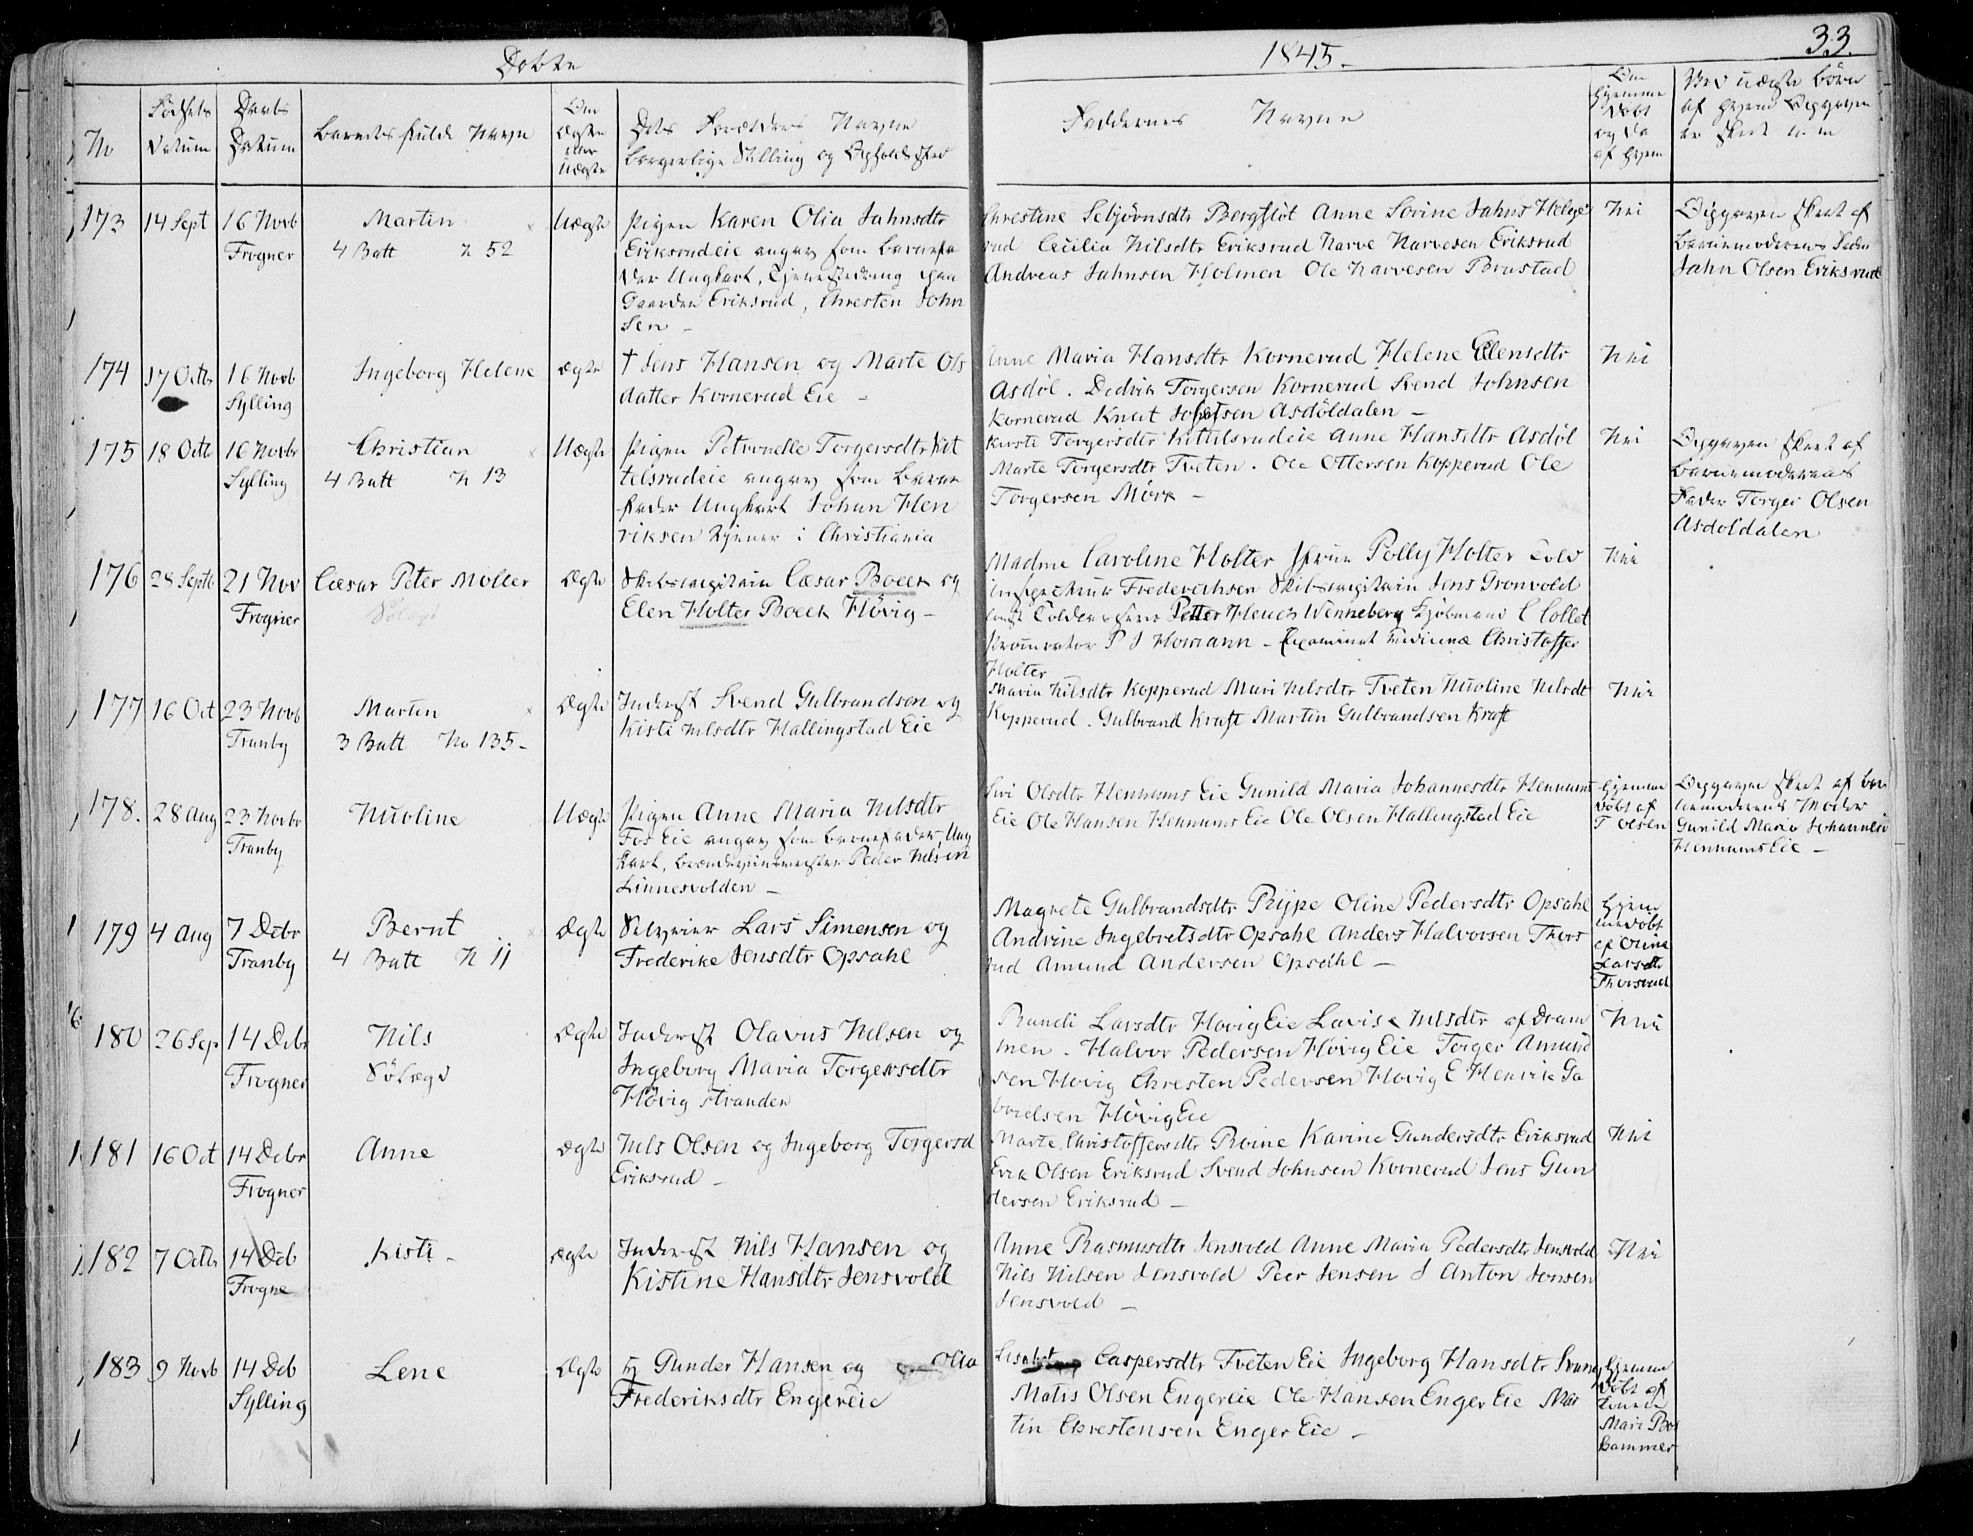 Døbte
1845.
33.
No
Fødsels Datum
Daabs Datum
Barnets fulde Navn
Om Ægte eller Uægte
Dets Forældres Navne
borgerlige Stilling og Opholdssted
Faddernes Navne
Om hjemme døbt og da af hvem
Ved uægte Børn af hvem Opgaven er skeet
173 14 Sept 16 Novb Frogner
Martin
4 Batt N 52
Uægte
Pigen Karen Olia Jahnsdtr
Eriksrudeie angav som Barnefa
der Ungkarl, Tjenestedreng paa
Gaarden Eriksrud, Christen John
sen –
Christine Sebjørnsdtr Bergflot Anne Sovine Jahns Helge
rud Cecilia Nilsdtr Eriksrud Narve Narvesen Eriksrud
Andreas Jahnsen Holmen Ole Narvesen Brustad
Nei
Opgaven skeet af
Barnemoderens Fader
Jahn Olsen Eriksrud
174 17 Octbr 16 Novb Sylling
Ingeborg Helene
Ægte
† Jens Hansen og Marte Ols
datter Kornerud Eie –
Anne Maria Hansdtr Kornerud Helene Ellensdtr
Asdøl. Dedrik Torgersen Kornerud Svend Johnsen
Kornerud Knut Asdöldalen –
Nei
175 18 Octb 16 Novbr Sylling
Christian
4 Batt N 13
Uægte
Pigen Petronelle Torgersdtr Kit
telsrudeie angav som Barne
fader Ungkarl Johan Hen
riksen Tjener i Christiania
Kirste Torgersdtr Kittelsrudeie Anne Hansdtr Asdøl
Marte Torgersdtr Tveten. Ole Ottersen Kopperud Ole
Torgersen Mörk –
Nei
Opgaven skeet af
Barnemoderens
Fader Torger Olsen
Asdoldalen
176 28 Septb 21 Nov Frogner
Cæsar Peter Möller
Søløgd
Ægte
Skibscapitain Cæsar Boeck og
Elen Holter Boeck Høvig –
Madme Caroline Holter Frue Polly Holter Told
inspecteur Frederichsen Skibscapitain Jens Gronvold
Petter Heuch Wenneberg Kjøbmand C Collet
Procurator P J Homann – Examinat Medicinæ Christoffer
Holter
Nei
177 16 Oct 23 Novb Tranby
Martin
3 Batt No 135 –
Ægte
Inderst Svend Gulbrandsen og
Kisti Nilsdtr Hallingstad Eie
Maria Nilsdtr Kopperud Mari Nilsdtr Tveten Nicoline Nilsdt
Kopperud. Gulbrand Kraft Martin Gulbrandsen Kraft
Nei
178. 28 Aug 23 Novbr Tranby
Nicoline
Uægte
Pigen Anne Maria Nilsdtr
Fos Eie angav som Barnefader, Ung
karl, Brændeviinsmester Peder Nilsen
Linnesvolden –
Siri Olsdtr Hennums Eie Gunild Maria Johannesdtr Hennums
Eie Ole Hansen Hennums Eie Ole Olsen Hallingstad Eie
Hjemme
døbt af
T Olsen
Opgaven skeet af Bar
nemoderens Moder
Gunild Maria Johannesd
Hennums Eie –
179 4 Aug 7 Debr Tranby
Bernt
4 Batt N 11
Ægte
Selveier Lars Simensen og
Frederike Jensdtr Opsahl
Magrete Gulbrandsdtr Prype Oline Pedersdtr Opsahl
Andrine Ingebretsdtr Opsahl Anders Halvorsen Thors
rud Amund Andersen Opsahl –
Hjem
medøbt
af Oline
Larsdtr
Thorsrud
180 26 Sep 14 Debr Frogner
Nils
Søløgd
Ægte
Inderst Olavus Nilsen og
Ingeborg Maria Torgersdtr
Høvig stranden
Randi Larsdtr Hovig Eie Lovise Nilsdtr af Dram
men. Halvor Pedersen Høvig Eie Torger Amund
sen Hovig Chresten Pedersen Hovig E Henrik Ga
brielsen Høvig Eie
Nei
181 16 Oct 14 Debr Frogner
Anne
Ægte
Nils Olsen og Ingeborg Torgersd
Eriksrud –
Marte Christoffersdtr Proine Karine Gundersdtr Eriksrud
Erik Olsen Eriksrud Svend Johnsen Kornerud Jens Gun
dersen Eriksrud –
Nei
182 7 Octbr 14 Deb Frogne
Kisti –
Ægte
Inderst Nils Hansen og
Kistine Hansdtr Jensvold
Anne Rasmusdtr Jensvold Anne Maria Pedersdtr Jensvold
Nils Nilsen Jensvold Peer Jensen J Anton Jensen
Jensvold –
Nei
183 9 Novb 14 Deb Sylling
Lene
Ægte
Gunder Hansen og Olia
Frederiksdtr Engereie
Lisabet Caspersdtr Tveten Eie Ingeborg Hansdtr
Matis Olsen Engereie Ole Hansen Enger Eie Mar
tin Chrestensen Enger Eie –
Hjemme
døbt af
Mari